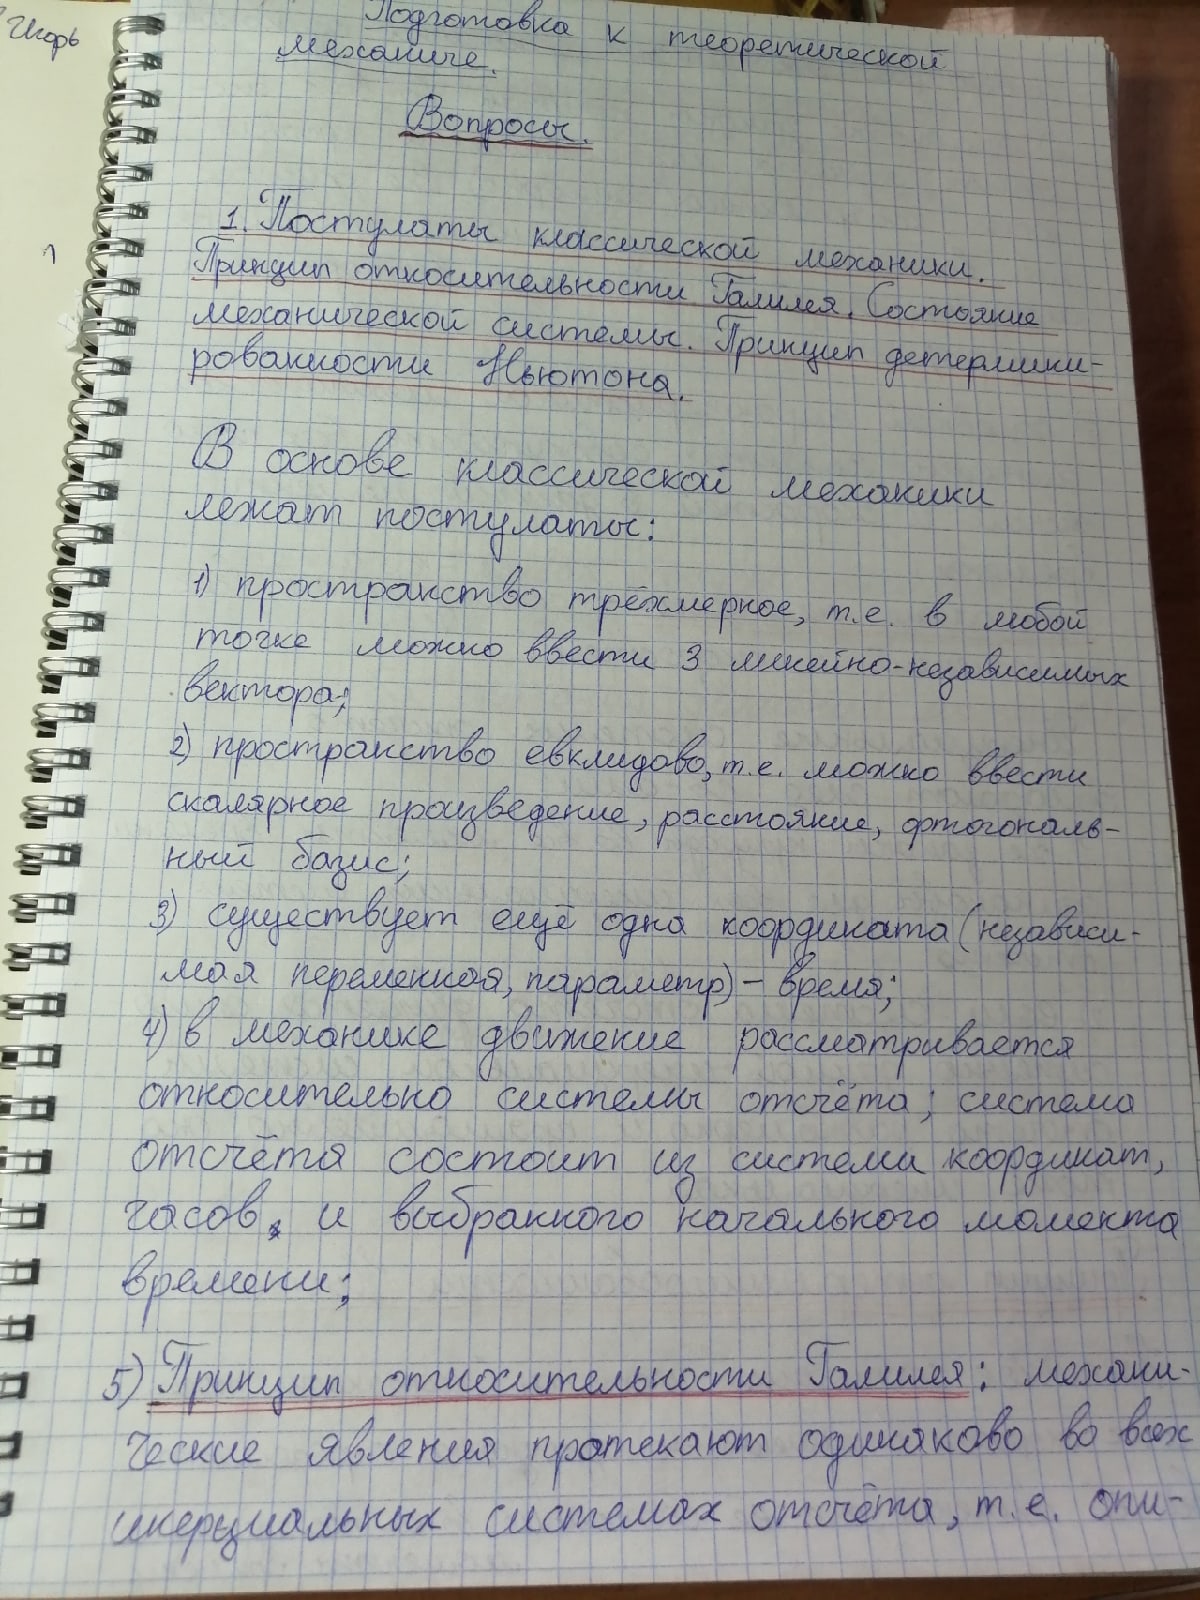 Игорь
Подготовка к теоретической
механике.
Вопросы.
1. Постулаты классической механики.
Принцип относительности Галилея. Состояние
механической системы. Принцип детермини-
рованности Ньютона.
В основе классической механики
лежат постулаты:
1) пространство трёхмерное, т.е. в любой
точке можно ввести 3 линейно-независимых
вектора;
2) пространство евклидово, т.е. можно ввести
скалярное произведение, расстояние, ортогональ-
ный базис;
3) существует ещё одна координата (независи-
мая переменная, параметр) – время;
4) в механике движение рассматривается
относительно системы отсчёта; система
отсчёта состоит из системы координат,
часов, и выбранного начального момента
времени;
5) Принцип относительности Галилея: механи-
ческие явления протекают одинаково во всех
инерциальных системах отсчёта, т.е. опи-